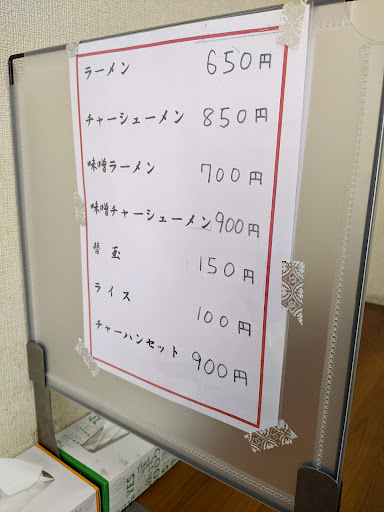 ラーメン 650円
チャーシューメン 850円
味噌ラーメン 700円
味噌チャーシューメン 900円
替玉 150円
ライス 100円
チャーハンセット 900円